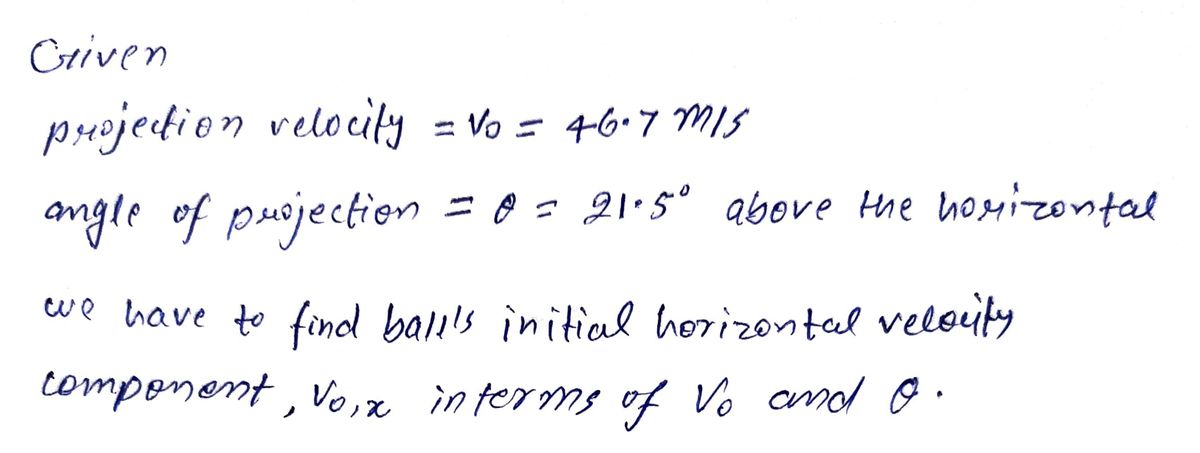 Given
projection velocity = V₀ = 46.7 m/s
angle of projection = θ = 21.5° above the horizontal
we have to find ball's initial horizontal velocity
component, V₀,ₓ interms of V₀ and θ.